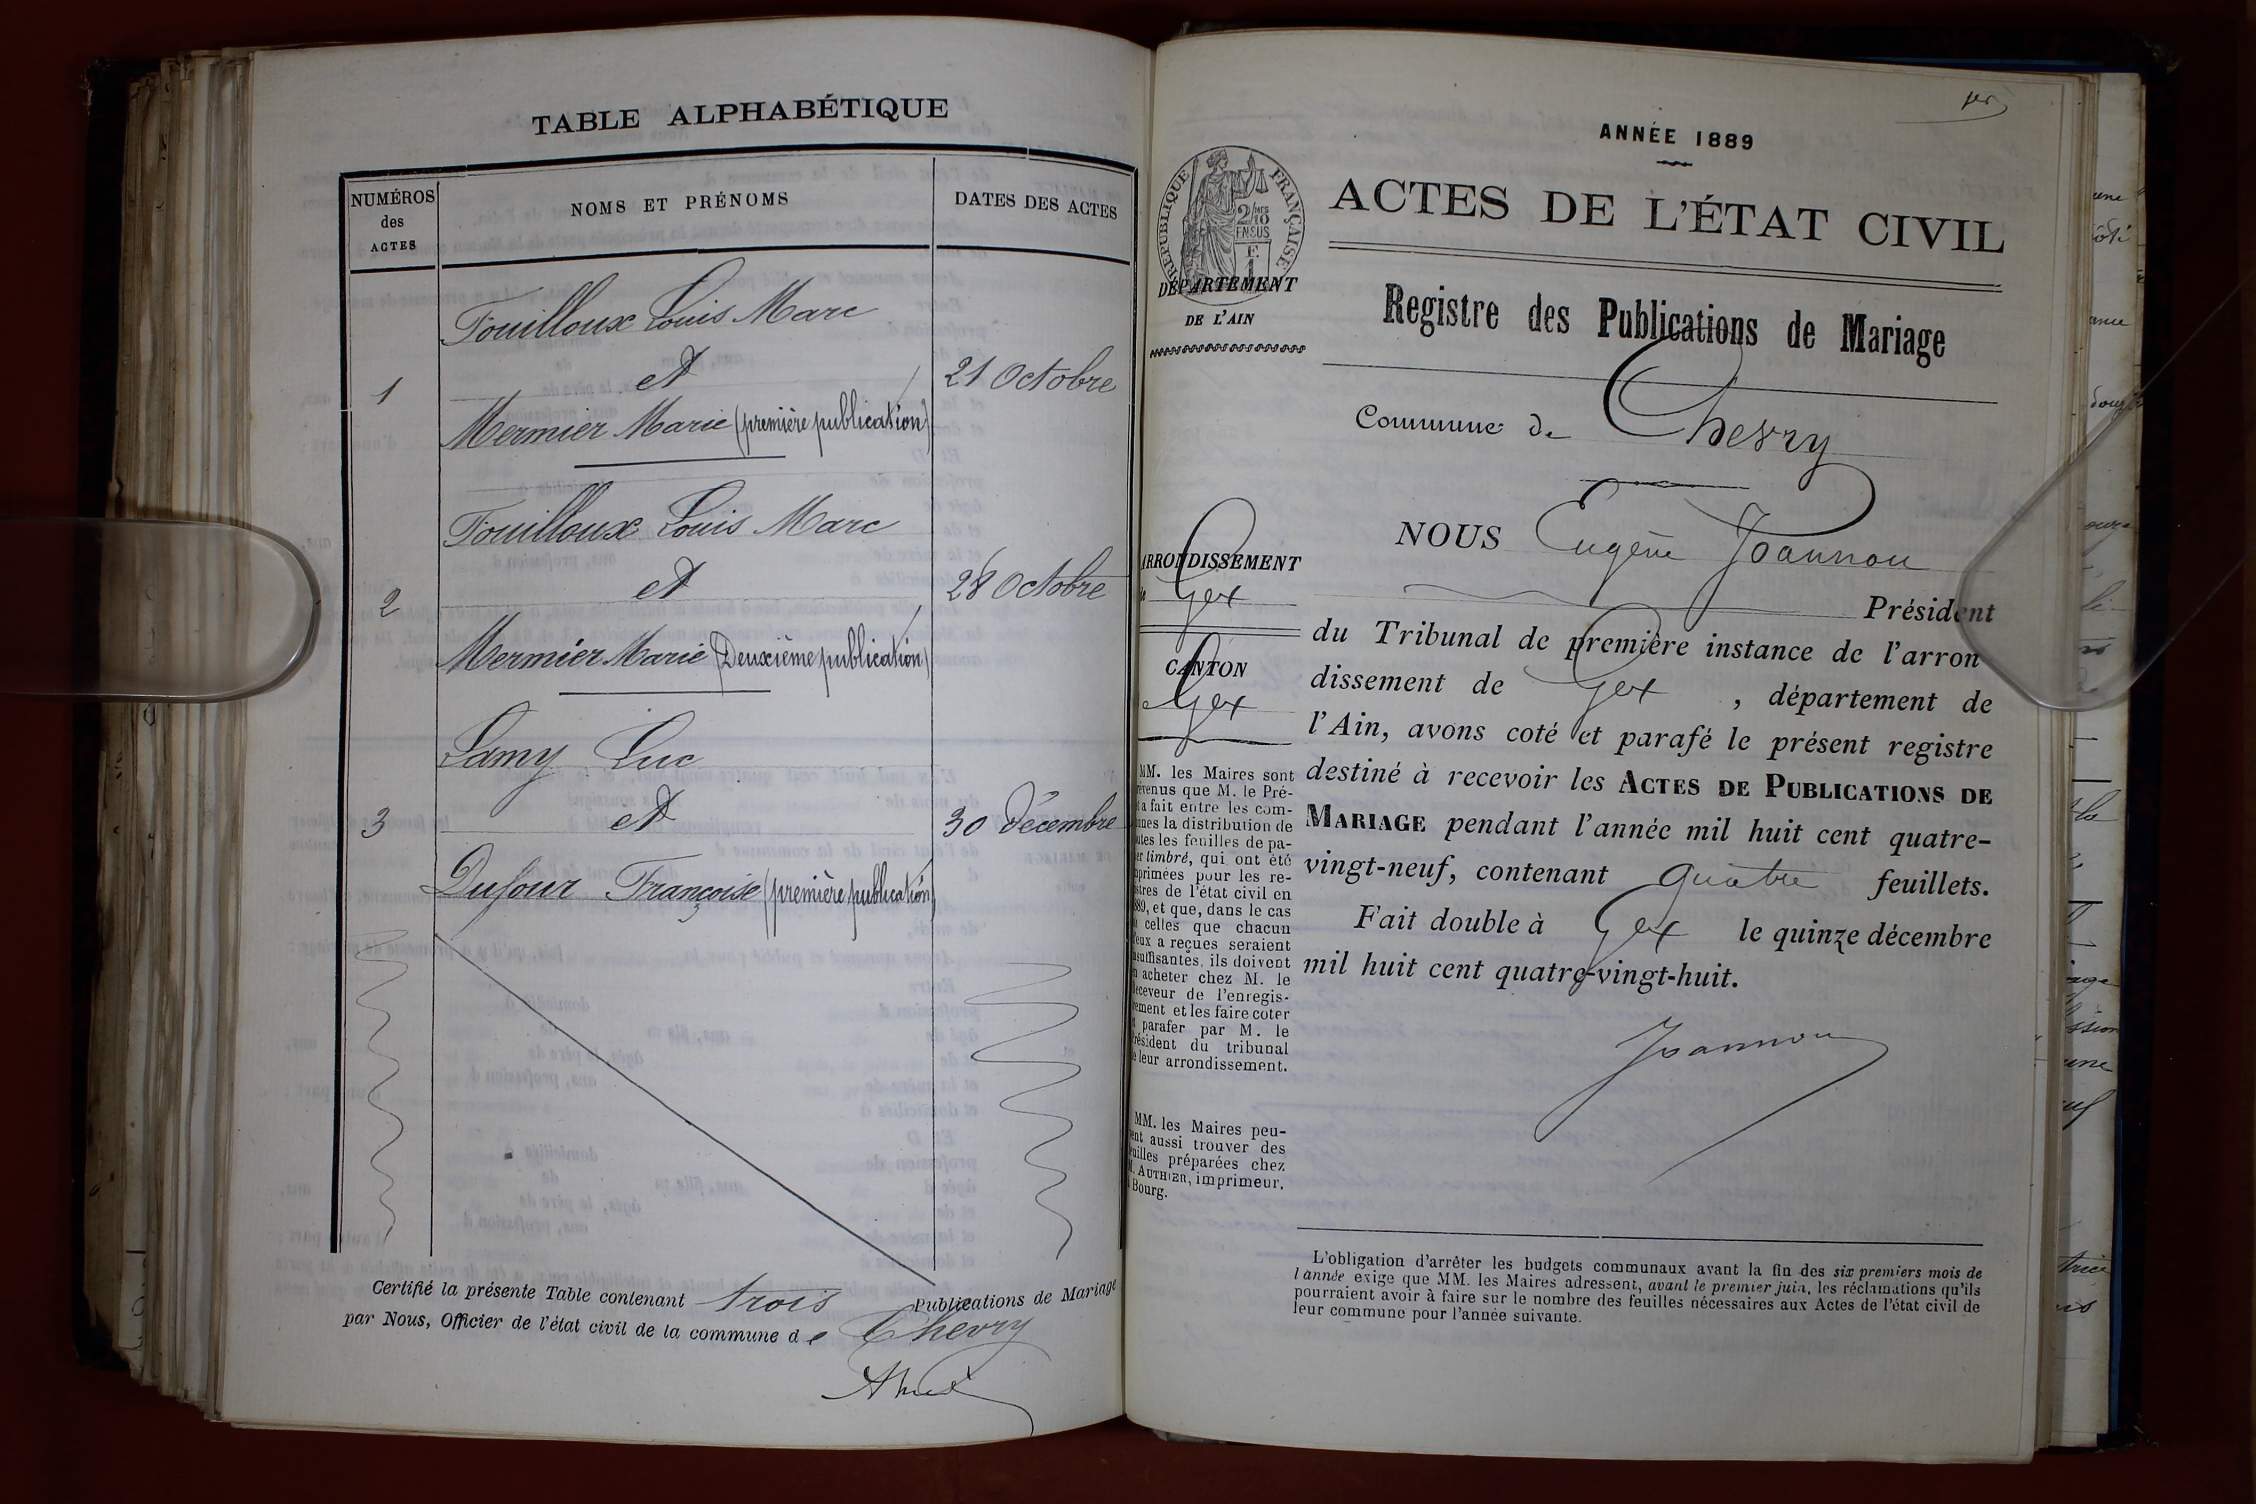 TABLE ALPHABÉTIQUE
NUMÉROS
des
ACTES
NOMS ET PRÉNOMS
DATES DES ACTES
Fouilloux Louis Marc
et
1
21 Octobre
Mermier Marie (première publication)
Fouilloux Louis Marc
et
2
28 Octobre
Mermier Marie (Deuxième publication)
Lamy Luc
et
3
30 Décembre
Dufour Françoise (première publication)
Certifié la présente Table contenant trois Publications de Mariage
par Nous, Officier de l'état civil de la commune de Chevry
1er
ANNÉE 1889
ACTES DE L'ÉTAT CIVIL
RÉPUBLIQUE FRANÇAISE
2/10
EN SUS
E
1
DÉPARTEMENT
DE L'AIN
Registre des Publications de Mariage
Commune de Chevry
ARRONDISSEMENT
Gex
CANTON
Gex
NOUS Eugène Joannon
Président
du Tribunal de première instance de l'arron
dissement de Gex , département de
l'Ain, avons coté et parafé le présent registre
destiné à recevoir les ACTES DE PUBLICATIONS DE
MARIAGE pendant l'année mil huit cent quatre-
vingt-neuf, contenant quatre feuillets.
Fait double à Gex le quinze décembre
mil huit cent quatre-vingt-huit.
Joannon
MM. les Maires sont
révenus que M. le Pré-
t a fait entre les com-
unes la distribution de
utes les feuilles de pa-
er timbré, qui ont été
primées pour les re-
stres de l'état civil en
889, et que, dans le cas
celles que chacun
eux a reçues seraient
suffisantes, ils doivent
n acheter chez M. le
eceveur de l'enregis-
ement et les faire coter
parafer par M. le
résident du tribunal
e leur arrondissement.
MM. les Maires peu-
ent aussi trouver des
euilles préparées chez
M. AUTHIER, imprimeur,
Bourg.
L'obligation d'arrêter les budgets communaux avant la fin des six premiers mois de
l'année exige que MM. les Maires adressent, avant le premier juin, les réclamations qu'ils
pourraient avoir à faire sur le nombre des feuilles nécessaires aux Actes de l'état civil de
leur commune pour l'année suivante.